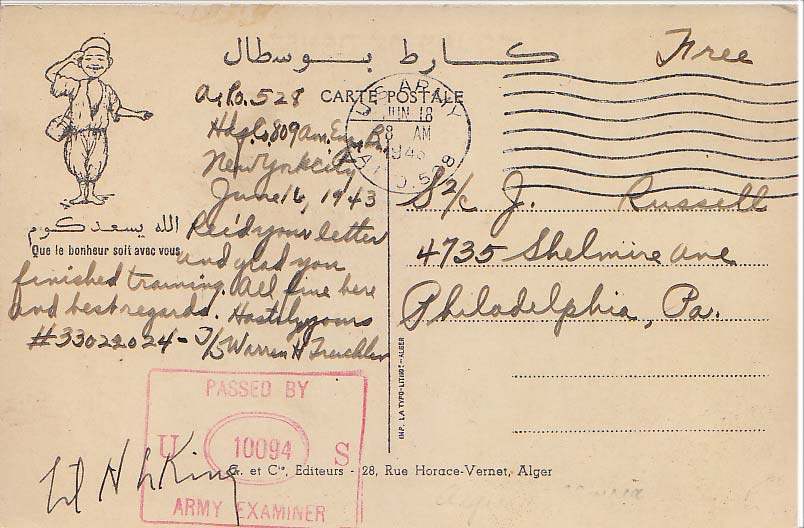 كارط بوسطال
Free
CARTE POSTALE
U.S. ARMY
JUN 18
8 AM
1943
A.P.O. 528
A.P.O. 528
Hdqs. 809 Avn. Eng. Bn.
New York City
June 16, 1943
Rec'd your letter
and glad you
finished training. All fine here
and best regards. Hastily yours
#33022024 - T/5 Warren H Treichler
الله يسعدكوم
Que le bonheur soit avec vous
S 2/c J. Russell
4735 Shelmire Ave
Philadelphia, Pa.
IMP. LA TYPO-LITHO - ALGER
PASSED BY
U 10094 S
ARMY EXAMINER
G. et Cie, Editeurs - 28, Rue Horace-Vernet, Alger